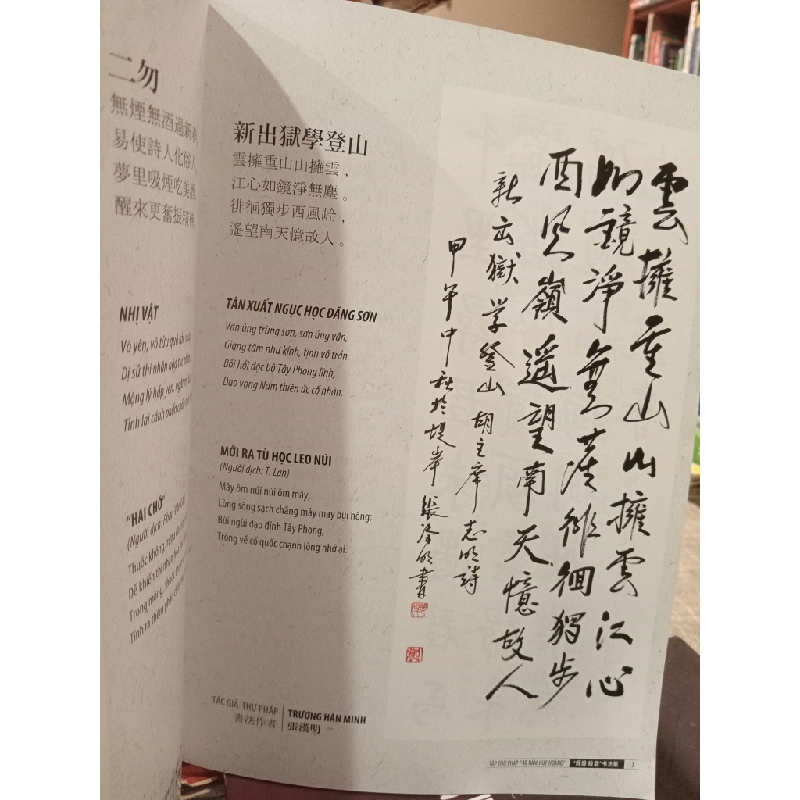 二勿
無煙無酒過新
易使詩人化俗人
夢里吸煙吃美酒
醒來更奮振精神
NHỊ VẬT
Vô yên, vô tửu quá tân
Dị sử thi nhân hóa tục
Mộng lý hấp yên,
Tỉnh lai cánh phấn chấn
"HAI CHỚ"
(Người dịch:
Thuốc không, rượu
Dễ khiến thi nhân
Trong mộng,
Tỉnh ra thêm phấn
新出獄學登山
雲擁重山山擁雲，
江心如鏡淨無塵。
徘徊獨步西風岭，
遙望南天憶故人。
TÂN XUẤT NGỤC HỌC ĐĂNG SƠN
Vân ủng trùng sơn, sơn ủng vân,
Giang tâm như kính, tịnh vô trần.
Bồi hồi độc bộ Tây Phong lĩnh,
Dao vọng Nam thiên ức cố nhân.
MỚI RA TÙ HỌC LEO NÚI
(Người dịch: T. Lan)
Mây ôm núi núi ôm mây,
Lòng sông sạch chẳng mảy may bụi hồng;
Bồi ngùi dạo đỉnh Tây Phong,
Trông về cố quốc chạnh lòng nhớ ai.
雲擁重山山擁雲江心
如鏡淨無塵徘徊獨步
西風嶺遙望南天憶故人
新出獄学登山 胡主席志明詩
甲午中秋於堤岸 張漢明書
TÁC GIẢ THƯ PHÁP
書法作者
TRƯƠNG HÁN MINH
張漢明
3